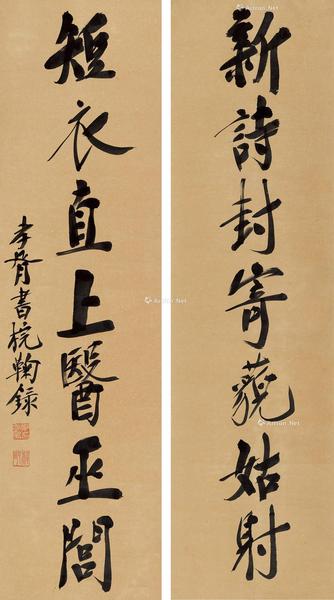 新詩封寄藐姑射
短衣直上醫巫閭
孝胥書梡鞠錄
Artron.Net